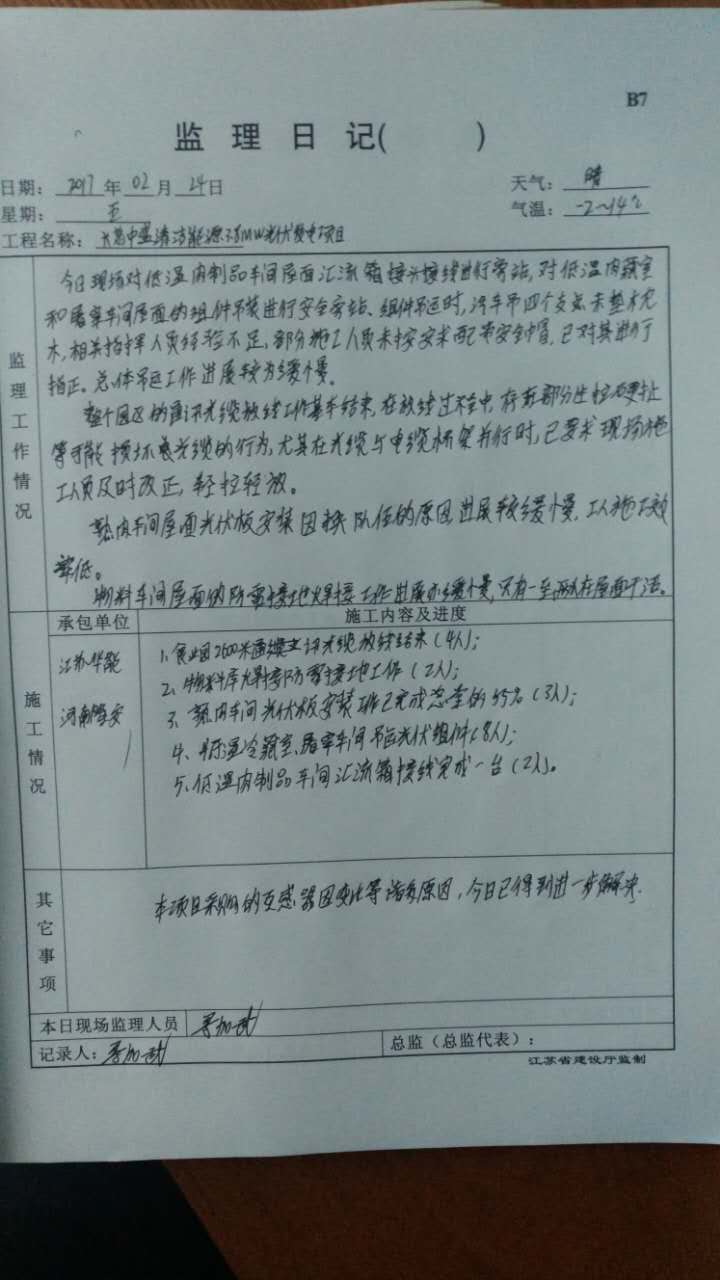 B7
监 理 日 记( )
日期: 2017 年 02 月 24 日
天气: 晴
星期: 五
气温: -2~14℃
工程名称: 中盛清洁能源 MW光伏发电项目
监理工作情况
今日现场对低温肉制品车间屋面汇流箱接头接线进行旁站,对低温肉
和屠宰车间屋面的组件吊装进行安全旁站、组件吊运时,汽车吊四个支点未垫木
木,相关指挥人员经验不足,部分施工人员未按安求配带安全帽,已对其进行
指正。总体吊运工作进展较为缓慢。
整个园区的通讯光缆放线工作基本结束,在放线过程中,存在部分生拉硬扯
等可能损坏 光缆的行为,尤其在光缆与电缆桥架并行时,已要求现场施
工人员及时改正,轻拉轻放。
熟肉车间屋面光伏板安装因换队伍的原因进展较缓慢,工人施工效
率低。
物料车间屋面的防雷接地焊接工作进展亦缓慢,只有一 在屋面干活。
施工情况
承包单位
施工内容及进度
江苏华
河南
1、 园2600米 通讯光缆放线结束(4人);
2、物料库焊接防雷接地工作(2人);
3、熟肉车间光伏板安装 已完成总量的45%(3人);
4、 屠宰车间吊运光伏组件(8人);
5、低温肉制品车间汇流箱接线完成一台(2人)。
其它事项
本项目采购的互感器因变比等诸多原因,今日已得到进一步解决.
本日现场监理人员 李加武
记录人: 李加武
总监(总监代表):
江苏省建设厅监制